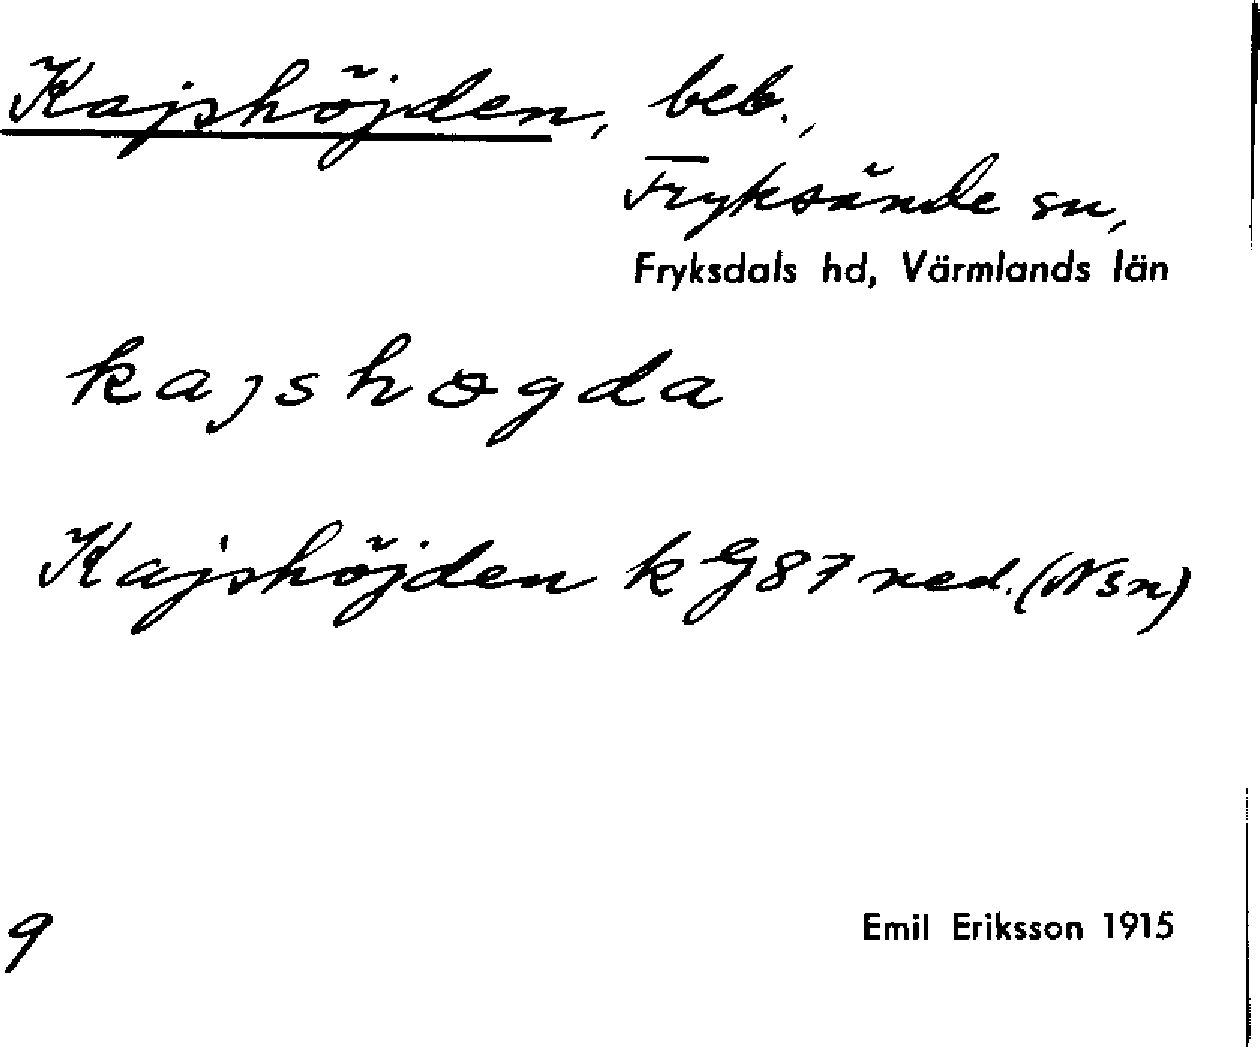 Kajshöjden, beb.,
Fryksände sn,
Fryksdals hd, Värmlands län
kajshøgda
Kajshöjden k G 87 ned. (Nsn)
9
Emil Eriksson 1915